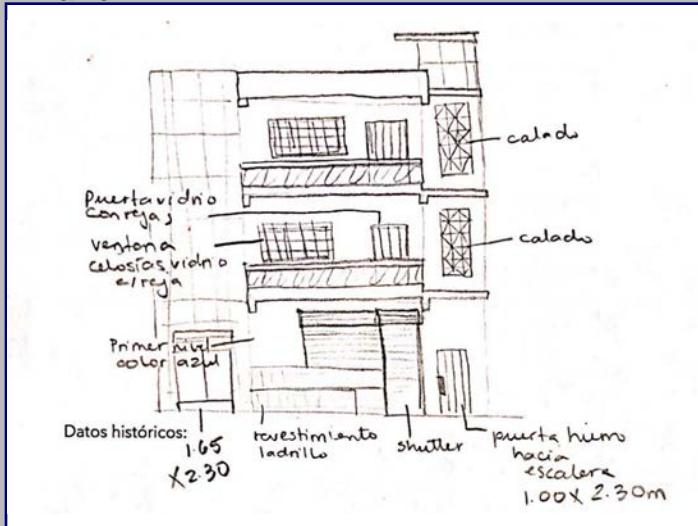 calado
Puerta vidrio
con reja,
ventana
celosías vidrio
c/reja
calado
Primer nivel
color azul
Datos históricos:
1.65
X2.30
revestimiento
ladrillo
shutter
puerta hierro
hacia
escalera
1.00 X 2.30m